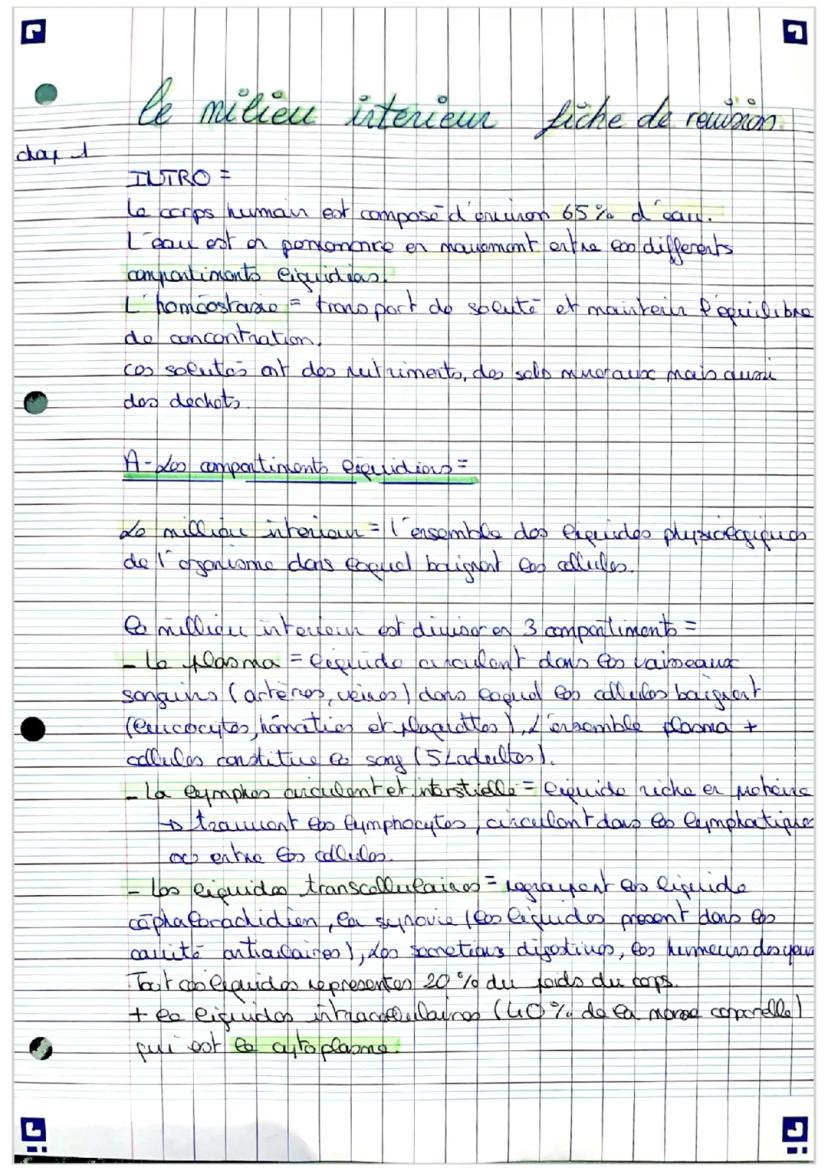 le milieu interieur fiche de revision
chap 1
INTRO =
Le corps humain est composé d'environ 65% d'eau.
L'eau est en permanence en mouvement entre les differents
compartiments liquidiens.
L'homéostasie = transport de soluté et maintein l'équilibre
de concentration.
ces solutés ont des nutriments, des sels mineraux mais aussi
des dechets.
A- Les compartiments liquidiens =
Le millieu interieur = l'ensemble des liquides physiologiques
de l'organisme dans lequel baignent les cellules.
Le millieu interieur est diviser en 3 compartiments =
- Le plasma = liquide circulant dans les vaisseaux
sanguins (artères, veines) dans lequel les cellules baignent
(leucocytes, hématies et plaquettes), L'ensemble plasma +
cellules constitue le sang (5L adultes).
- La lymphes circulent et interstielle = liquide riche en proteine
→ traversent les lymphocytes, circulant dans les lymphatique
ou entre les cellules.
- les liquides transcellulaires = regroupent les liquide
céphalorachidien, la synovie (les liquides present dans les
cavité articulaires), les secretions digestives, les humeurs des yeux
Tout ces liquides representes 20% du poids du corps.
+ le liquides intracellulaires (40% de la masse corporelle)
qui est le cytoplasme.